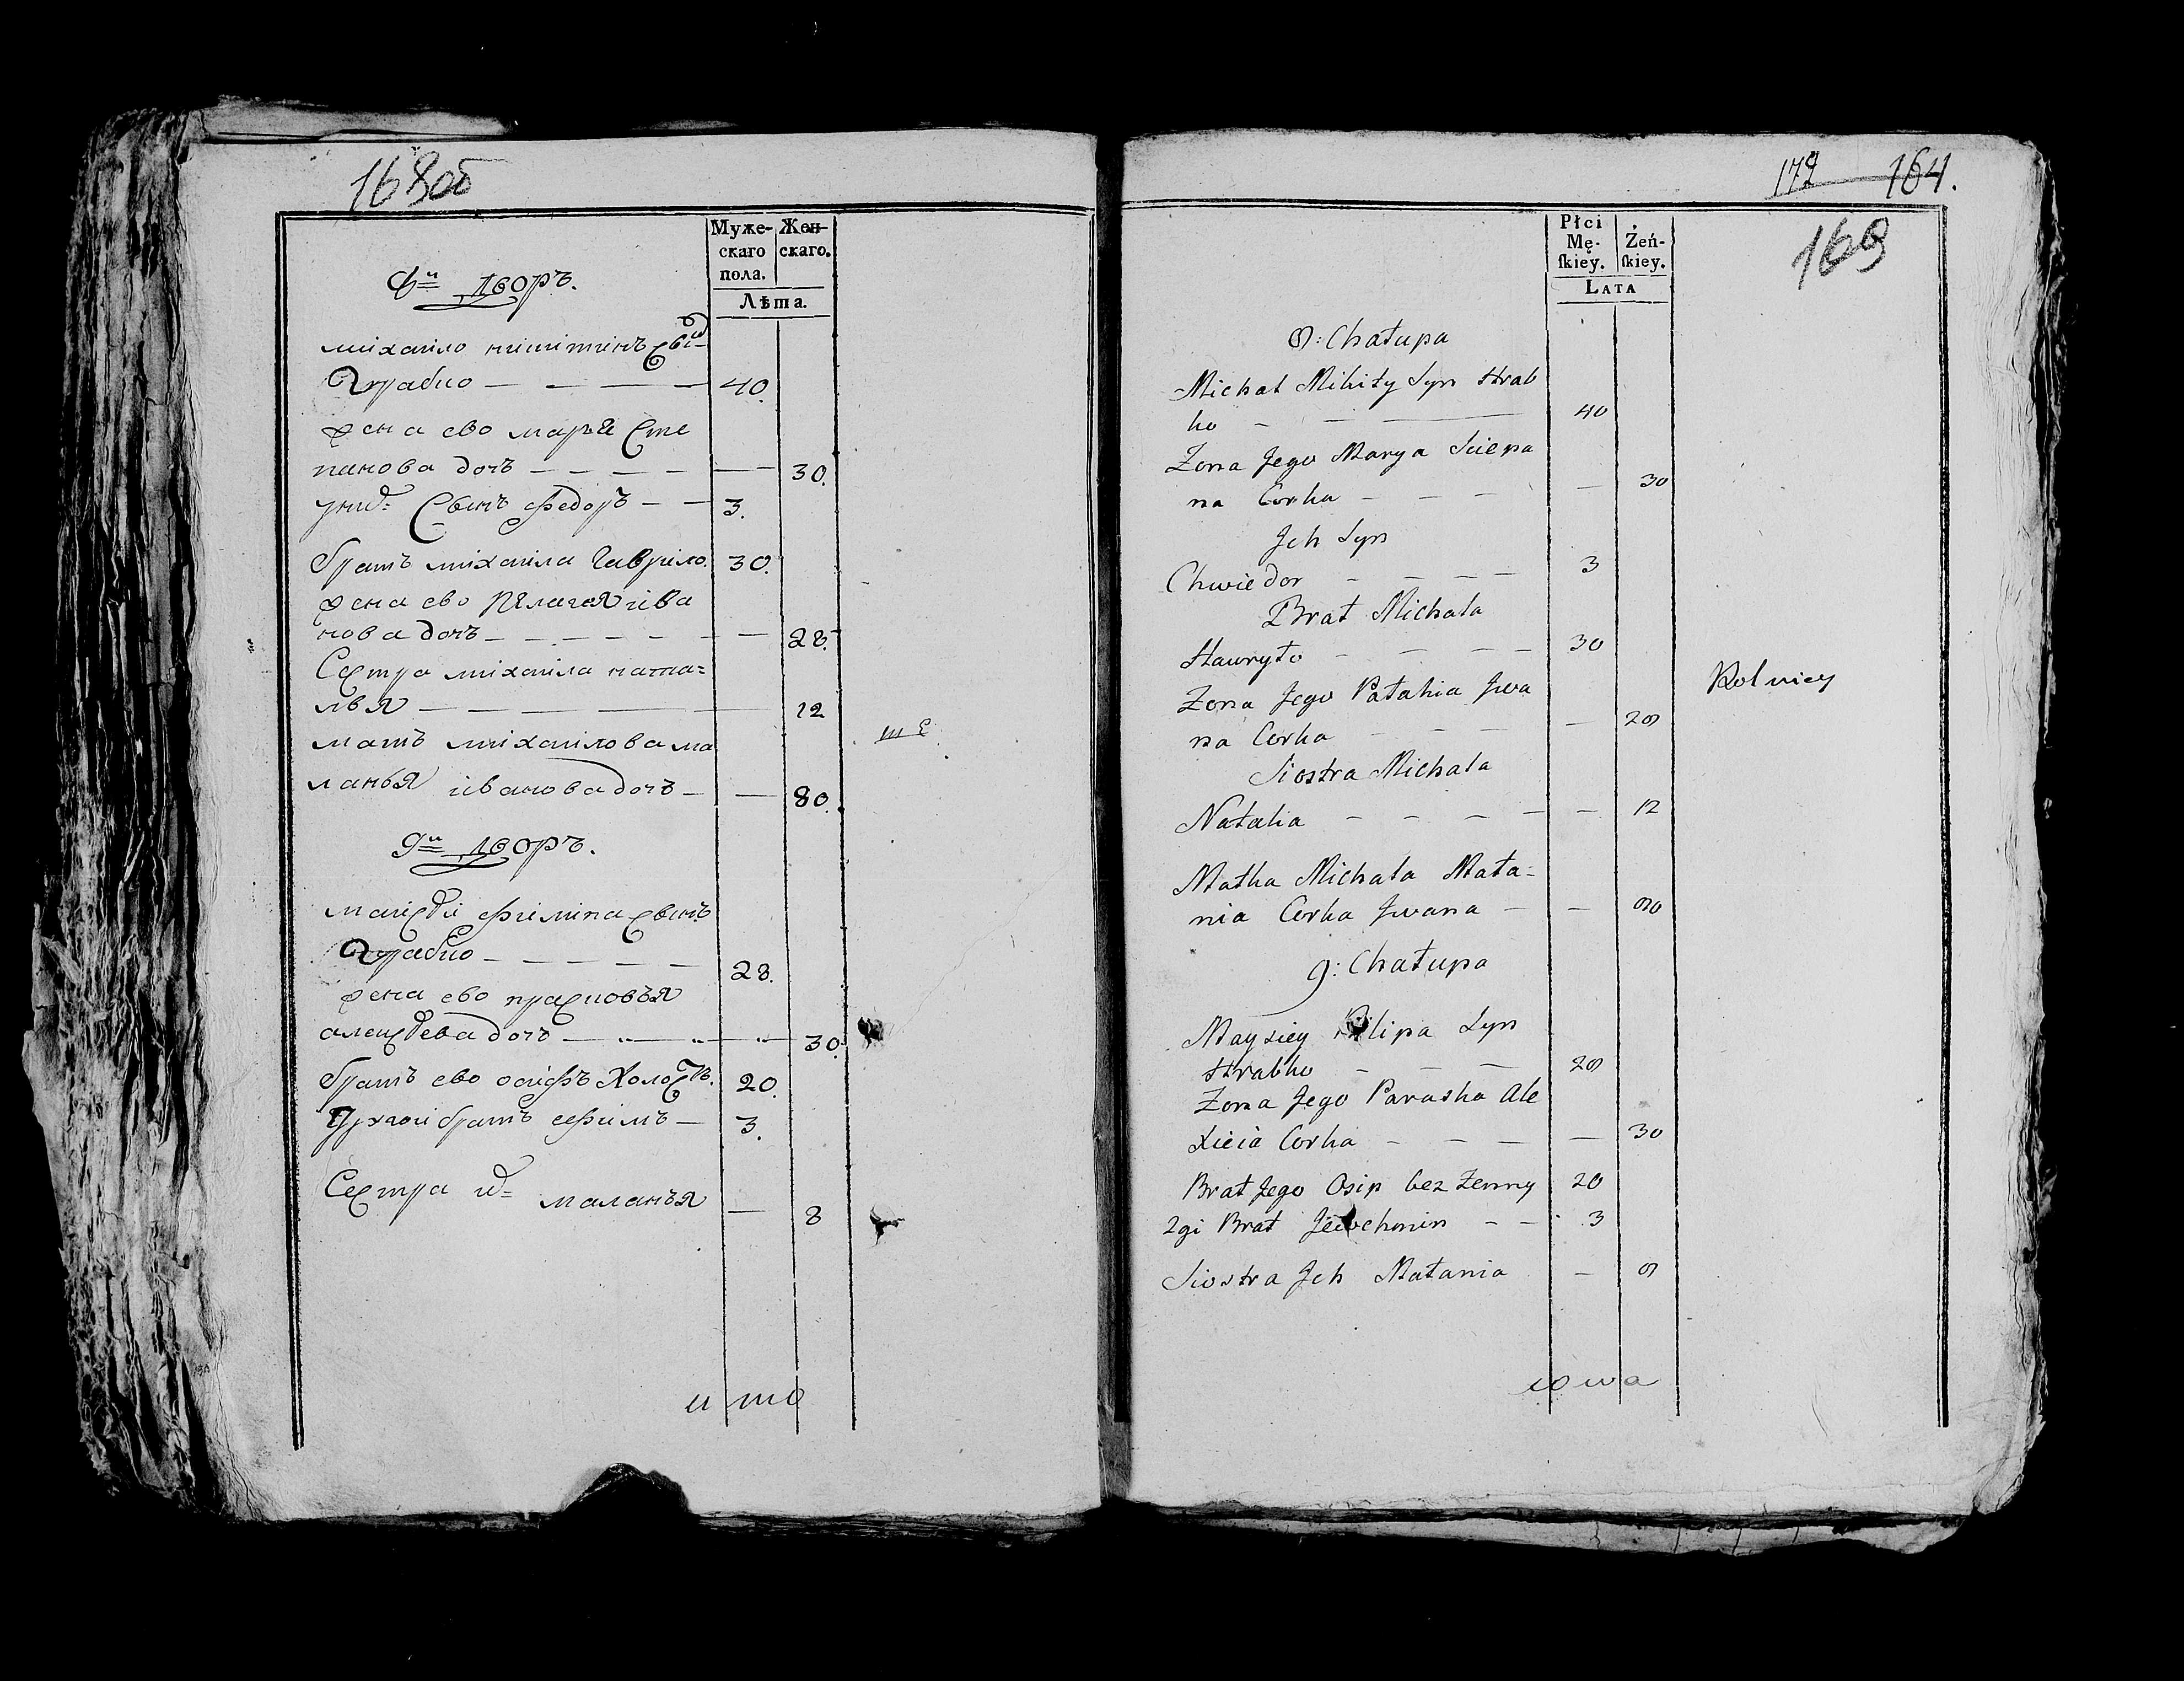 168об
Муже-
скаго
пола.
Жен-
скаго.
Лѣта.
8й дворъ.
михаило никитинъ сынъ
Грабко — — — — 40.
жена ево марья сте
панова дочь — — — — — 30.
у них сынъ федоръ — — 3.
братъ михаила гаврило. 30.
жена ево пелагея ива
нова дочь — — — — — — 28.
Сестра михаила ната=
лья — — — — 12
мать михаилова ма
ланья иванова дочь — — 80.
9й дворъ.
маисѣй филипа сынъ
Грабко — — — — — 28.
жена ево прасковья
алексѣева дочь — „ — „ — „ 30.
братъ ево осифъ холостъ. 20.
другой братъ ефимъ — 3.
Сестра их= маланья — 8
итo
172 164.
169
Płci
Mę-
ſkiey.
Żeń-
ſkiey.
LATA
8: Chałupa
Michał Mikity Syn Hrab
ko — — — 40
Zona Jego Marya Sciepa
na Corka — — — — 30
Jch Syn
Chwiedor — — — — 3
Brat Michała
Hauryło — — — — 30
Zona Jego Pałahia Jwa
na Corka — — — — 28
Rolnicy
Siostra Michała
Natalia — — — — — 12
Matka Michała Mała=
nia Corka Jwana — — 80
9: Chałupa
Maysiey Filipa Syn
Hrabko — — — 28
Zona Jego Paraska Ale
xieia Corka — — — — 30
Brat Jego Osip bez Zenny 20
2gi Brat Jewchmin — — 3
Siostra Jch Małania — 8